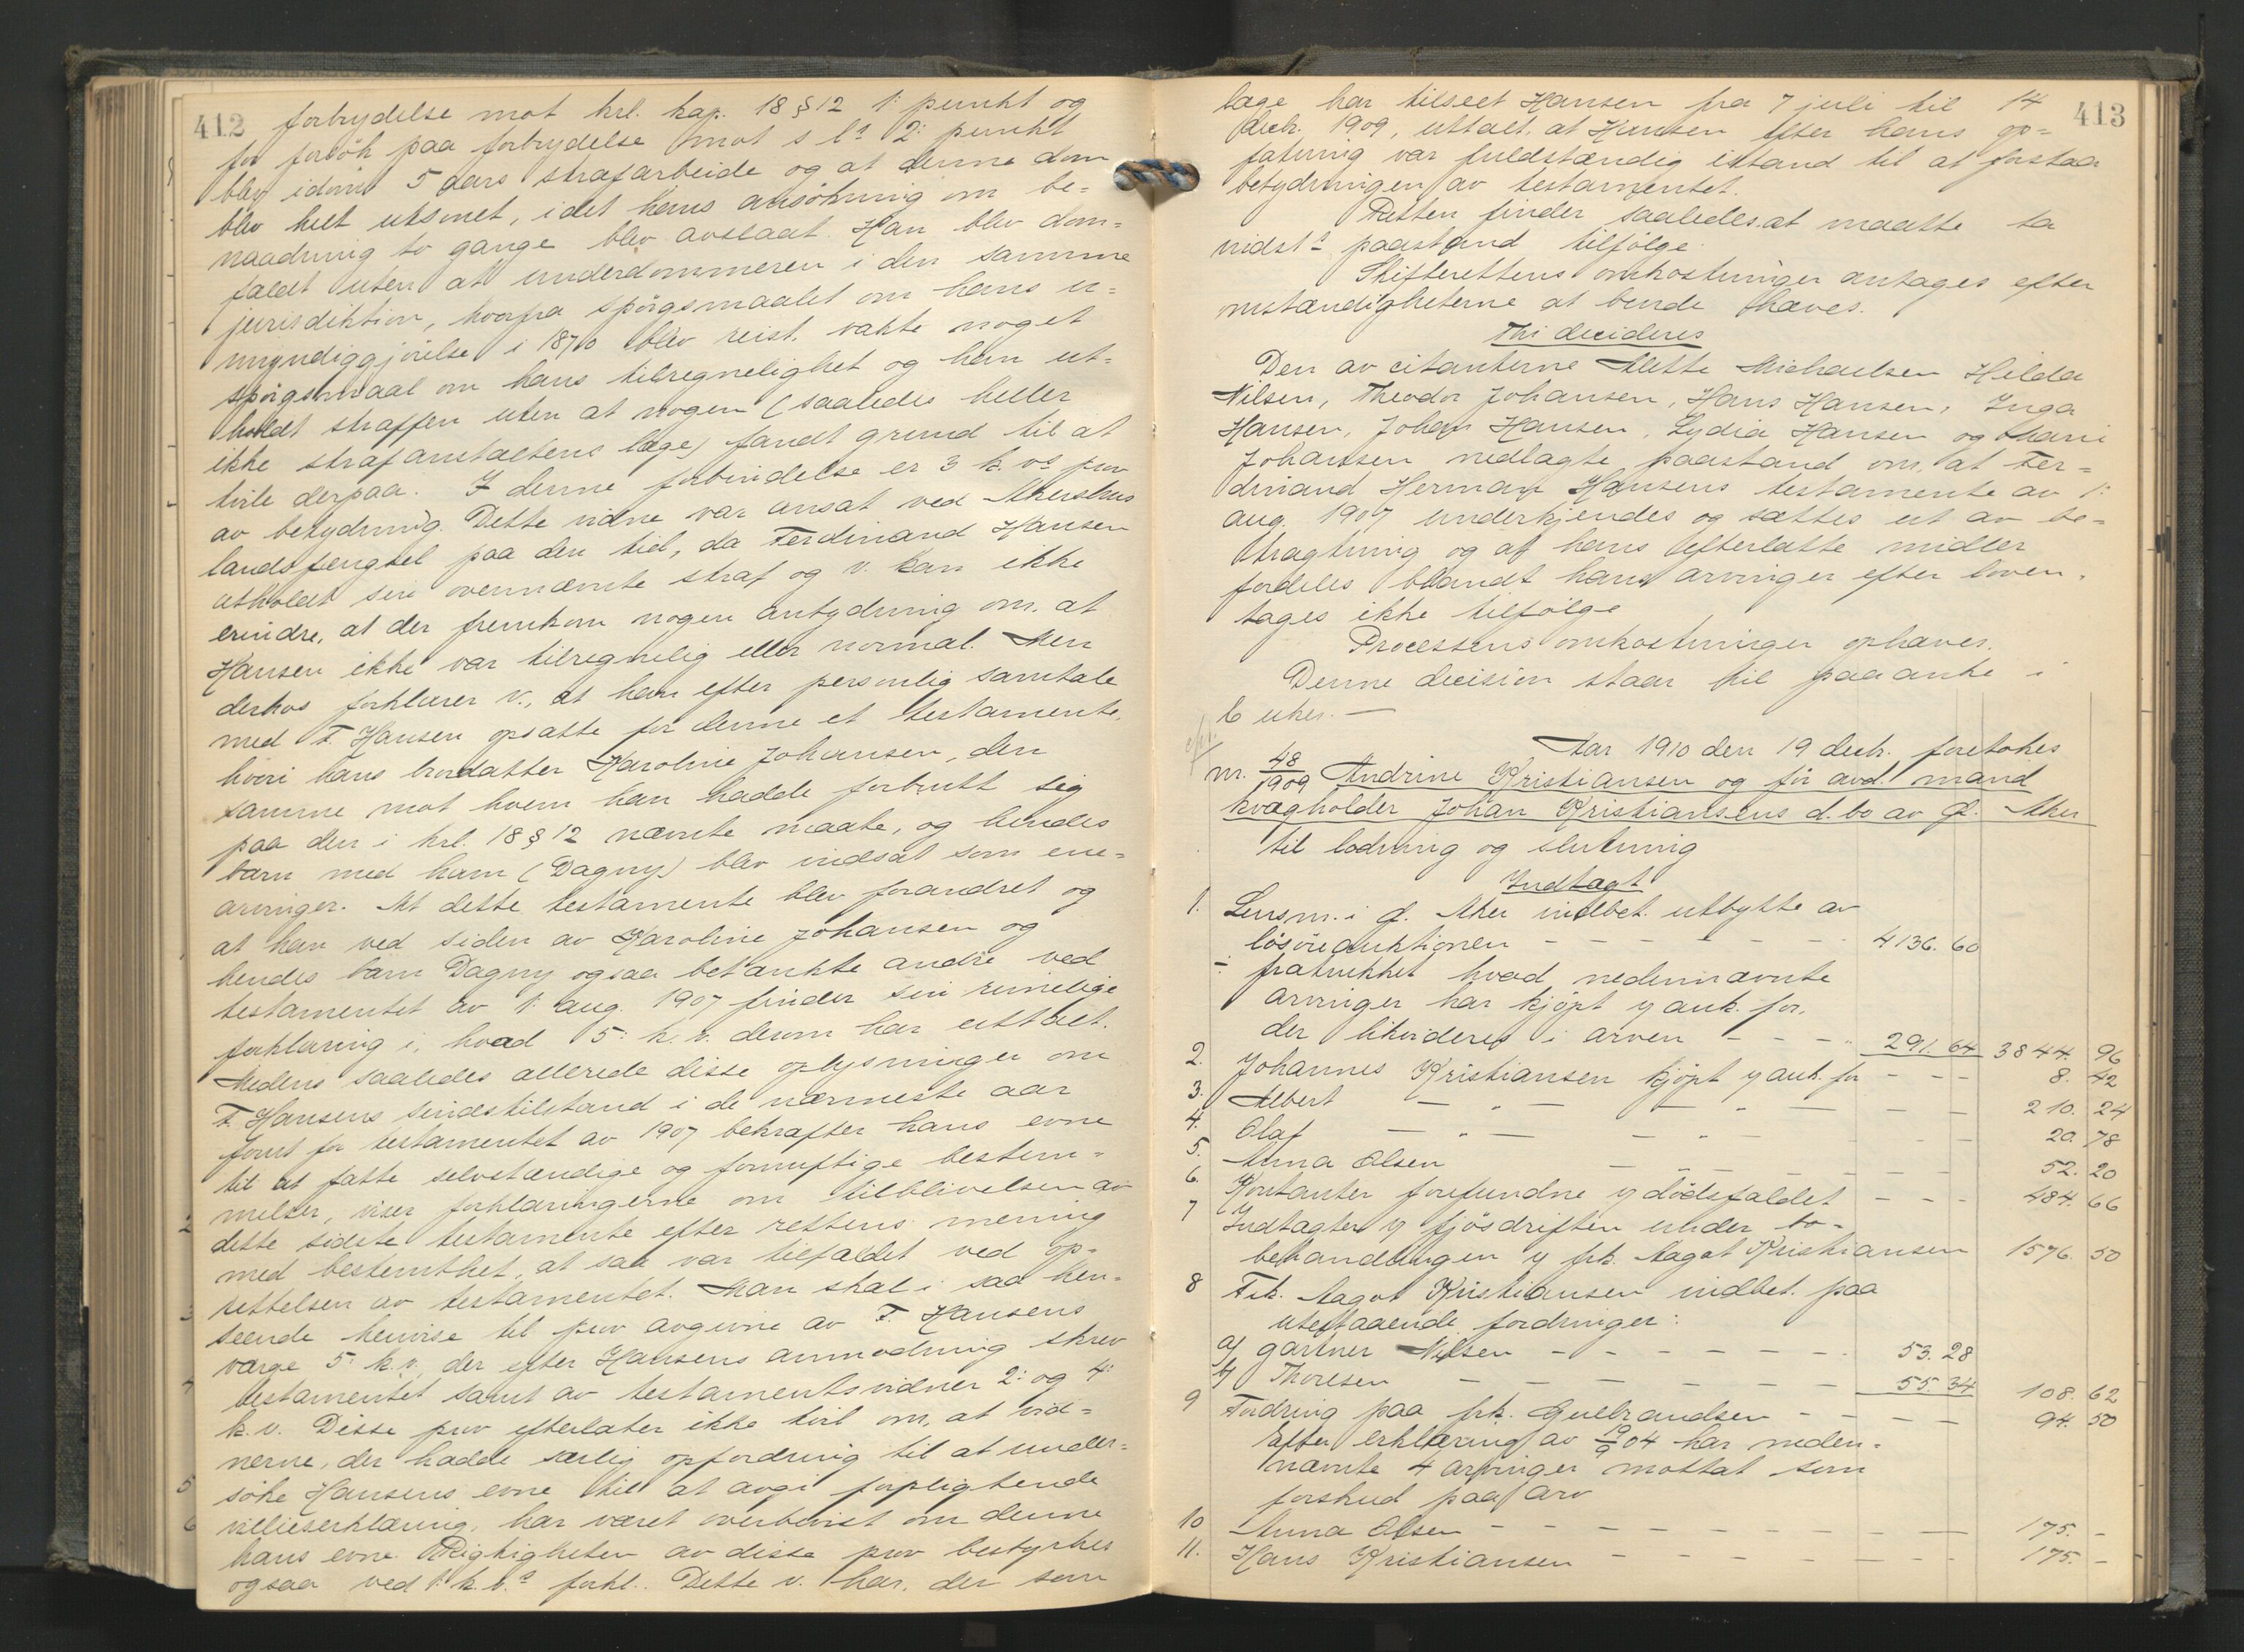 412
forbrydelse mot krl. kap. 18 § 12 1: punkt og
for forsök paa forbrydelse mot s l? 2: punkt
blev idömt 5 aars strafarbeide og at denne dom
blev helt utsonet, idet hans ansökning om be=
naadning to gange blev avslaat. Han blev dom=
fældt uten at underdommeren i den samme
jurisdiktion, hvorfra spörgsmaalet om hans u=
myndiggjörelse i 1870 blev reist, vakte noget
spörgsmaal om hans tilregnelighet og han ut=
holdt straffen uten at nogen (saaledes heller
ikke strafanstaltens læge) fandt grund til at
tvile derpaa. I denne forbindelse er 3 k. vs prov
av betydning. Dette vidne var ansat ved Akershus
landsfængsel paa den tid, da Ferdinand Hansen
utholdt sin ovennævnte straf og v. kan ikke
erindre, at der fremkom nogen antydning om, at
Hansen ikke var tilregnelig eller normal. Men
derhos forklarer v., at han efter personlig samtale
med F. Hansen opsatte for denne et testamente,
hvori hans brordatter Karoline Johansen, den
samme mot hvem han hadde forbrutt sig
paa den i krl. 18 § 12 nævnte maate, og hendes
barn med ham (Dagny) blev indsat som ene=
arvinger. At dette testamente blev forandret og
at han ved siden av Karoline Johansen og
hendes barn Dagny ogsaa betænkte andre ved
testamentet av 1: aug. 1907 finder sin rimelige
forklaring i, hvad 5: k. v. derom har uttalt.
Medens saaledes allerede disse oplysninger om
F. Hansens sindstilstand i de nærmeste aar
forut for testamentet av 1907 bekræfter hans evne
til at fatte selvstændige og fornuftige bestem=
melser, viser forklaringerne om tilblivelsen av
dette sidste testamente efter rettens mening
med bestemthet, at saa var tilfældet ved op=
rettelsen av testamentet. Man skal i saa hen=
seende henvise til prov avgivne av F. Hansens
værge 5: k. v., der efter Hansens anmodning skrev
testamentet samt av testamentsvidner 2: og 4:
k. v. Disse prov efterlater ikke tvil om, at vid=
nerne, der hadde særlig opfordring til at under=
söke Hansens evne til at avgi forpligtende
villieserklæring, har været overbevist om denne
hans evne. Rigtigheten av disse prov bestyrkes
ogsaa ved 1: k. v.s forkl. Dette v. har, der som
413
læge har tilseet Hansen fra 7 juli til 14
decbr. 1909, uttalt, at Hansen efter hans op=
fatning var fuldstændig istand til at forstaa
betydningen av testamentet.
Retten finder saaledes at maatte ta
indst? paastand tilfölge.
Skifterettens omkostninger antages efter
omstændigheterne at burde hæves.
Thi decideres
Den av citanterne Mette Michaelsen Hilda
Nilsen, Theodor Johansen, Hans Hansen, Inga
Hansen, Johan Hansen, Lydia Hansen og Marie
Johansen nedlagte paastand om, at Fer=
dinand Herman Hansens testamente av 1:
aug. 1907 underkjendes og sættes ut av be=
tragtning og at hans efterlatte midler
fordeles blandt hans arvinger efter loven,
tages ikke tilfölge
Processens omkostninger ophæves.
Denne decision staar til paaanke i
6 uker. —
Aar 1910 den 19 decbr. foretokes
nr. 48/1909 Andrine Kristiansen og för avd. mand
kvægholder Johan Kristiansens d. bo av Ø. Aker
til lodning og slutning
Indtægt
1. Lensm. i Ø. Aker indbet. utbytte av
lösöreauktionen - - - - - - - 4136. 60
÷ fratrukket hvad nedennævnte
arvinger har kjöpt v auk. for,
der likvideres i arven - - - - 291. 64 3844. 96
2. Johannes Kristiansen kjöpt v auk. for - - - 8. 42
3. Albert — " — — " — — — 210. 24
4. Olaf — " — — " — — — 20. 78
5. Anna Olsen — — — — — — 52. 20
6. Kontanter forefundne v dödsfaldet - - - 484. 66
7 Indtægter v fjösdriften under bo=
behandlingen v frk. Aagot Kristiansen 1576. 50
8 Frk. Aagot Kristiansen indbet. paa
utestaaende fordringer:
a/ gartner Nilsen - - - - - - 53. 28
b/ Thoresen — — — — — — 55. 34 108. 62
9 Fordring paa frk. Gulbrandsen - - - - 94. 50
Efter erklæring av 19/9 04 har neden=
nævnte 4 arvinger mottat som
forskud paa arv
10 Anna Olsen - - - - - - - - 175. -
11. Hans Kristiansen - - - - - - - 175. -
2
3
4
5
6